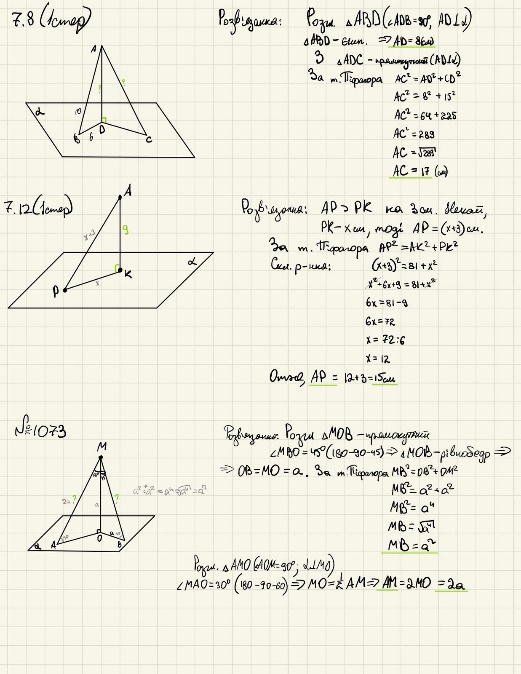 7.8 (1стер)
Розв'язання: Розгл. △ABD (∠ADB=90°, AD⊥α)
△ABD - Єгип. ⇒ AD = 8(см)
З △ADC - прямокутний (AD⊥α)
За т. Піфагора AC² = AD² + CD²
AC² = 8² + 15²
AC² = 64 + 225
AC² = 289
AC = √289
AC = 17 (см)
A
α
10
B
6
D
C
7.12 (1стер)
Розв'язання: AP > PK на 3 см. Нехай,
PK - x см, тоді AP = (x+3) см.
За т. Піфагора AP² = AK² + PK²
Скл. р-ння: (x+3)² = 81 + x²
x² + 6x + 9 = 81 + x²
6x = 81 - 9
6x = 72
x = 72:6
x = 12
Отже, AP = 12+3 = 15 см
A
x+3
9
α
K
x
P
№1073
Розв'язання. Розгл △MOB - прямокутний
∠MBO = 45° (180-90-45) ⇒ △MOB - рівнобедр ⇒
⇒ OB = MO = a. За т. Піфагора MB² = OB² + OM²
MB² = a² + a²
MB² = a⁴
MB = √a⁴
MB = a²
M
2a ?
a
?
a² + a² = a⁴ √a⁴ = a²
α
A
O
a
B
Розгл. △AMO (∠AOM = 90°, α⊥MO)
∠MAO = 30° (180-90-60) ⇒ MO = ½ AM ⇒ AM = 2MO = 2a